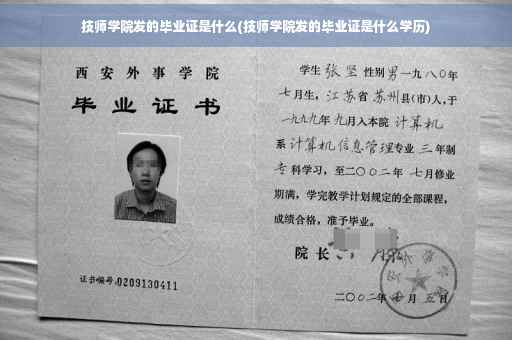 技师学院发的毕业证是什么(技师学院发的毕业证是什么学历)
西安外事学院
毕业证书
证书编号:0209130411
学生 张坚 性别 男 一九八〇年
七月生，江苏省 苏州县(市)人，于
一九九九年 九月入本院 计算机
系 计算机信息管理专业 三 年制
专科学习，至二〇〇二年 七月修业
期满，学完教学计划规定的全部课程，
成绩合格，准予毕业。
院长
二〇〇二年 七 月 五 日